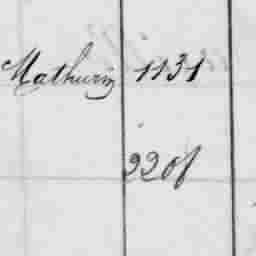 Mathurin 1131
2201